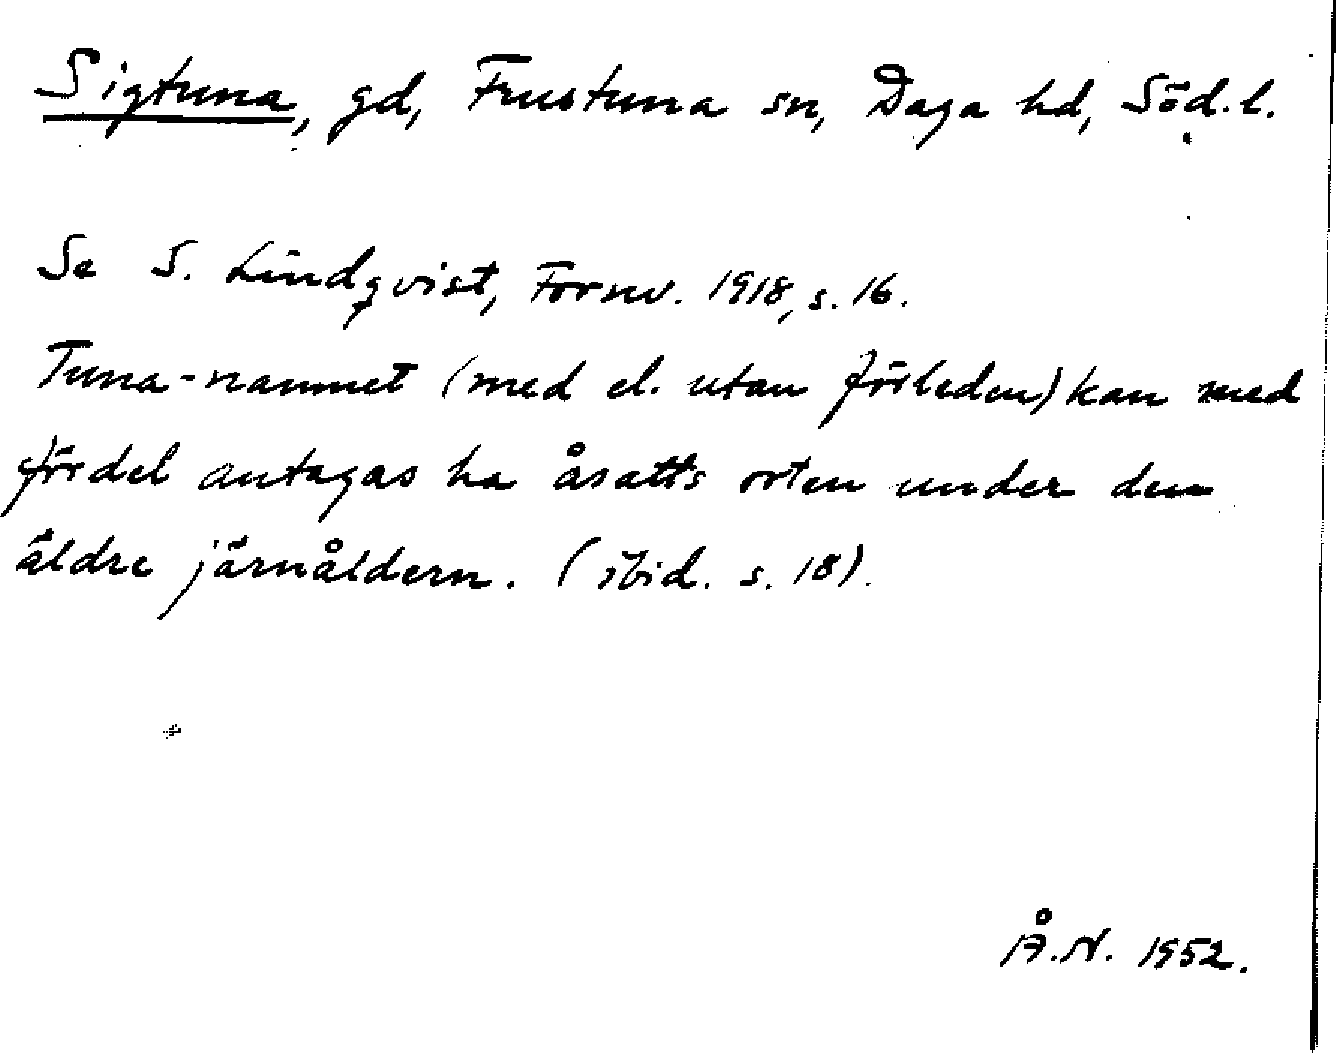 Sigtuna, gd, Frustuna sn, Daga hd, Söd.l.
Se S. Lindqvist, Fornv. 1918, s. 16.
Tuna-namnet (med el. utan förleden) kan med
fördel antagas ha åsatts orten under den
äldre järnåldern. (ibid. s. 18).
Å.N. 1952.